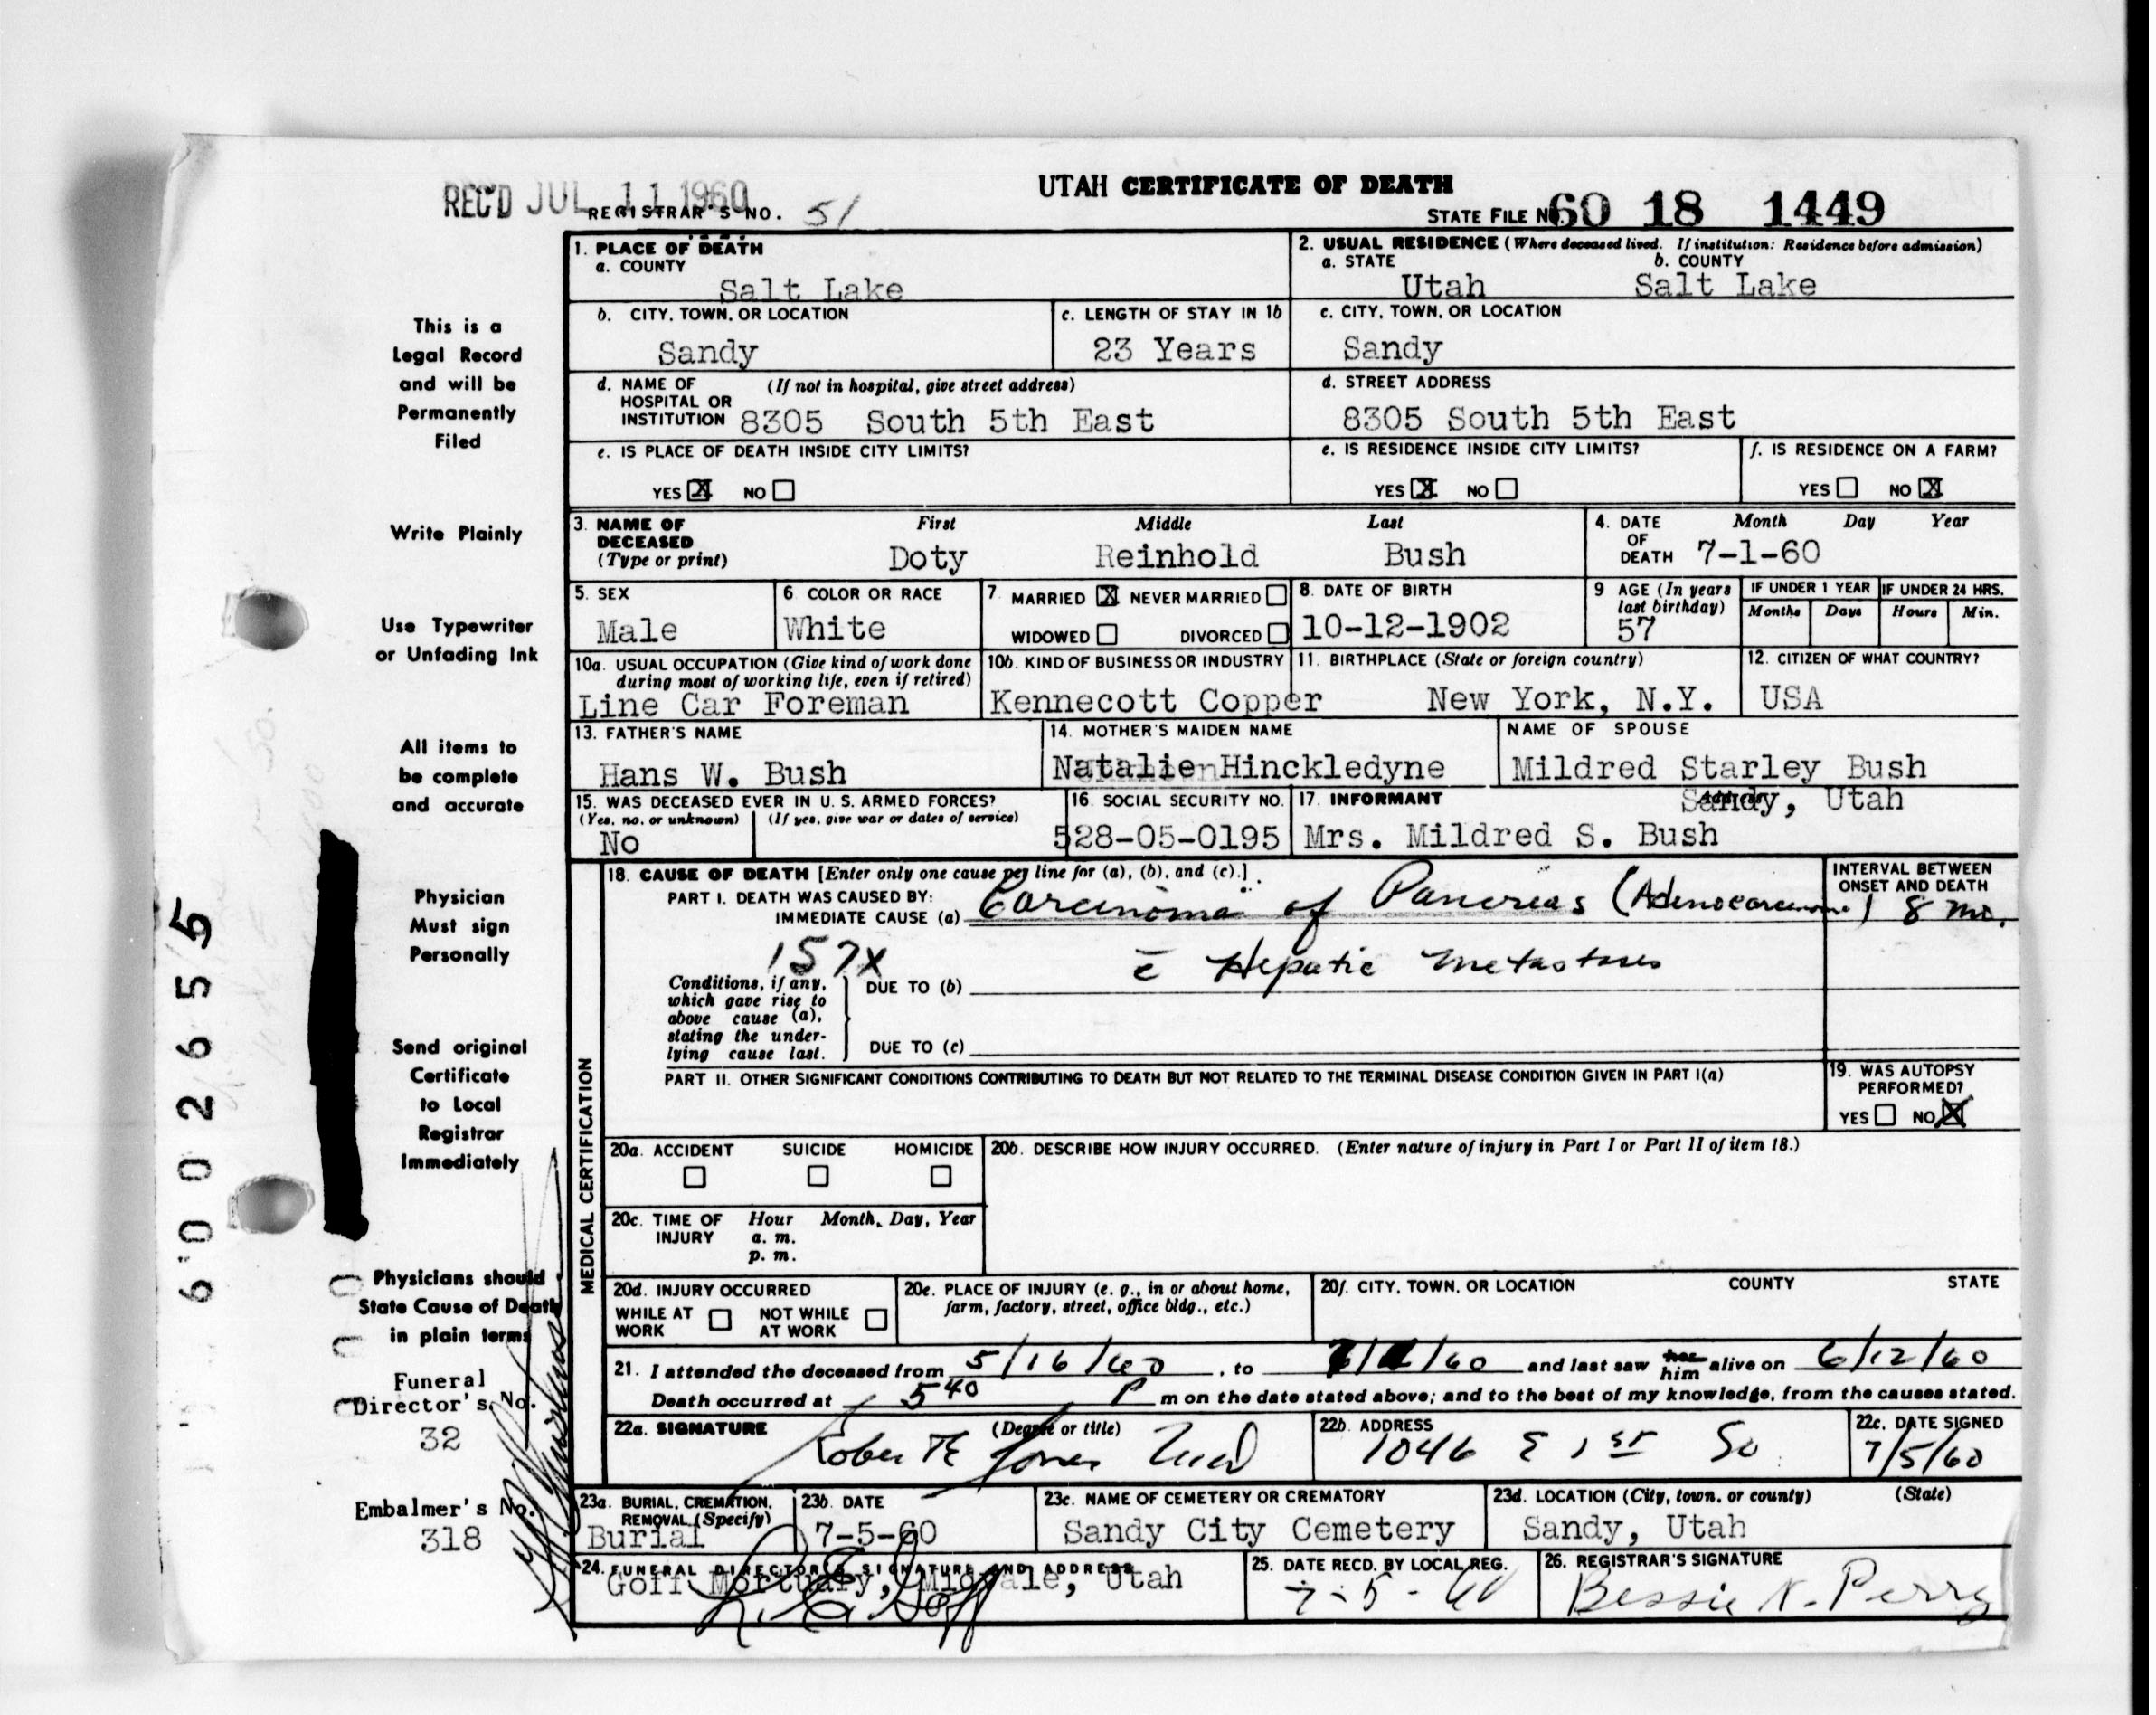 UTAH CERTIFICATE OF DEATH
REC'D JUL 11 1960
REGISTRAR'S NO. 51
STATE FILE NO. 60 18 1449
1. PLACE OF DEATH
a. COUNTY
Salt Lake
2. USUAL RESIDENCE (Where deceased lived. If institution: Residence before admission)
a. STATE b. COUNTY
Utah Salt Lake
b. CITY, TOWN, OR LOCATION
Sandy
c. LENGTH OF STAY IN 1b
23 Years
c. CITY, TOWN, OR LOCATION
Sandy
d. NAME OF (If not in hospital, give street address)
HOSPITAL OR
INSTITUTION 8305 South 5th East
d. STREET ADDRESS
8305 South 5th East
e. IS PLACE OF DEATH INSIDE CITY LIMITS?
YES X NO
e. IS RESIDENCE INSIDE CITY LIMITS?
YES X NO
f. IS RESIDENCE ON A FARM?
YES NO X
3. NAME OF DECEASED (Type or print)
First Middle Last
Doty Reinhold Bush
4. DATE OF DEATH
Month Day Year
7-1-60
5. SEX
Male
6 COLOR OR RACE
White
7. MARRIED X NEVER MARRIED
WIDOWED DIVORCED
8. DATE OF BIRTH
10-12-1902
9 AGE (In years last birthday)
57
IF UNDER 1 YEAR
Months Days
IF UNDER 24 HRS.
Hours Min.
10a. USUAL OCCUPATION (Give kind of work done
during most of working life, even if retired)
Line Car Foreman
10b. KIND OF BUSINESS OR INDUSTRY
Kennecott Copper
11. BIRTHPLACE (State or foreign country)
New York, N.Y.
12. CITIZEN OF WHAT COUNTRY?
USA
13. FATHER'S NAME
Hans W. Bush
14. MOTHER'S MAIDEN NAME
Natalie Hinckledyne
NAME OF SPOUSE
Mildred Starley Bush
15. WAS DECEASED EVER IN U.S. ARMED FORCES?
(Yes, no, or unknown) (If yes, give war or dates of service)
No
16. SOCIAL SECURITY NO.
528-05-0195
17. INFORMANT
Sandy, Utah
Mrs. Mildred S. Bush
MEDICAL CERTIFICATION
18. CAUSE OF DEATH [Enter only one cause per line for (a), (b), and (c).]
PART I. DEATH WAS CAUSED BY:
IMMEDIATE CAUSE (a) Carcinoma of Pancreas (Adenocarcinoma)
INTERVAL BETWEEN
ONSET AND DEATH
8 mo.
157X
c̄ Hepatic Metastases
Conditions, if any,
which gave rise to
above cause (a),
stating the under-
lying cause last.
DUE TO (b)
DUE TO (c)
PART II. OTHER SIGNIFICANT CONDITIONS CONTRIBUTING TO DEATH BUT NOT RELATED TO THE TERMINAL DISEASE CONDITION GIVEN IN PART I(a)
19. WAS AUTOPSY
PERFORMED?
YES NO X
20a. ACCIDENT SUICIDE HOMICIDE
20b. DESCRIBE HOW INJURY OCCURRED. (Enter nature of injury in Part I or Part II of item 18.)
20c. TIME OF INJURY
Hour Month, Day, Year
a. m.
p. m.
20d. INJURY OCCURRED
WHILE AT WORK
NOT WHILE AT WORK
20e. PLACE OF INJURY (e. g., in or about home,
farm, factory, street, office bldg., etc.)
20f. CITY, TOWN, OR LOCATION COUNTY STATE
21. I attended the deceased from 5/16/60, to 7/1/60 and last saw her him alive on 6/12/60
Death occurred at 5 40 P m on the date stated above; and to the best of my knowledge, from the causes stated.
22a. SIGNATURE (Degree or title)
Robert E Jones MD
22b. ADDRESS
1046 E 1st So
22c. DATE SIGNED
7/5/60
23a. BURIAL, CREMATION,
REMOVAL (Specify)
Burial
23b. DATE
7-5-60
23c. NAME OF CEMETERY OR CREMATORY
Sandy City Cemetery
23d. LOCATION (City, town, or county) (State)
Sandy, Utah
24. FUNERAL DIRECTOR'S SIGNATURE AND ADDRESS
Goff Mortuary, Midvale, Utah
25. DATE RECD. BY LOCAL REG.
7-5-60
26. REGISTRAR'S SIGNATURE
Bessie N. Perry
This is a
Legal Record
and will be
Permanently
Filed
Write Plainly
Use Typewriter
or Unfading Ink
All items to
be complete
and accurate
Physician
Must sign
Personally
Send original
Certificate
to Local
Registrar
Immediately
Physicians should
State Cause of Death
in plain terms
Funeral
Director's No.
32
Embalmer's No.
318
6002655